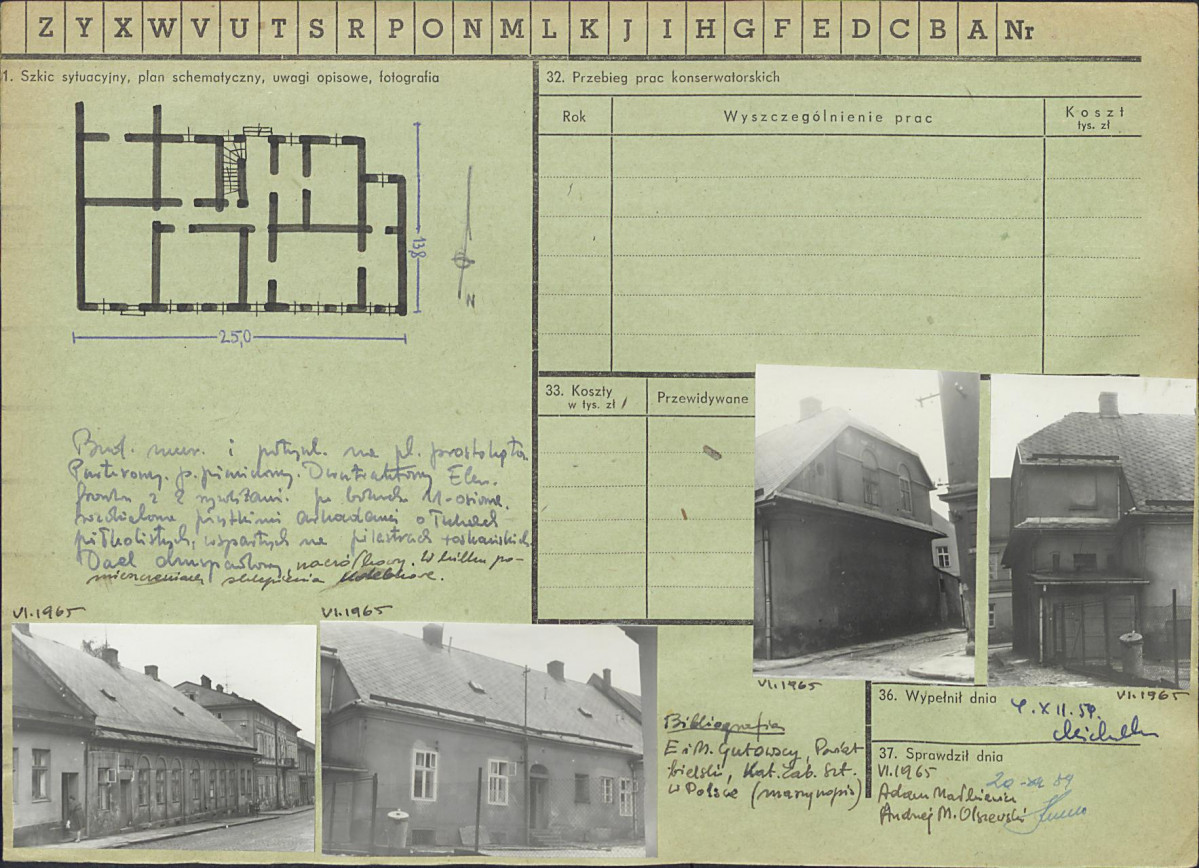 Z Y X W V U T S R P O N M L K J I H G F E D C B A Nr
1. Szkic sytuacyjny, plan schematyczny, uwagi opisowe, fotografia
13,8
N
25,0
Bud. mur. i potynk. na pl. prostokąta.
Parterowy. p. piwniczony. Dwutraktowy. Elew.
frontu z 2 ryzalitami po bokach 11-osiowa,
rozdzielona płytkimi arkadami o łukach
półkolistych, wspartych na pilastrach toskańskich.
Dach dwuspadowy, naczółkowy. W kilku po-
mieszczeniach sklepienia kolebkowe.
VI.1965
VI.1965
32. Przebieg prac konserwatorskich
Rok
Wyszczególnienie prac
Koszt
tys. zł
33. Koszty
w tys. zł
Przewidywane
VI.1965
VI.1965
Bibliografia
E i M. Gutowscy, Powiat
bielski, Kat. Zab. Szt.
w Polsce (maszynopis)
36. Wypełnił dnia
4.XII.59.
37. Sprawdził dnia
VI.1965
Adam
Andrzej M. Olszewski